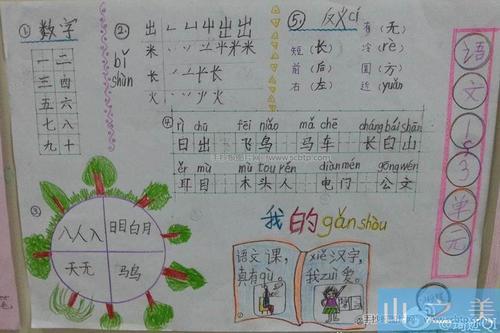 ① 数字
一 二
三 四
五 六
七 八
九 十
② bǐ shùn
出
米
长
火
⑤ 反义cí
有（无）
短（长） 冷（rè）
前（后） 圆（方）
右（左） 近（yuǎn）
④ rì chū fēi niǎo mǎ chē cháng bái shān
日出 飞鸟 马车 长白山
ěr mù mù tou rén diàn mén gōng wén
耳目 木头人 电门 公文
③
八人入 日目白月
天无 马鸟
我的gǎn shòu
语文课， xiě汉字，
真有qù。 我zuì爱。
语文1~3单元
山之美